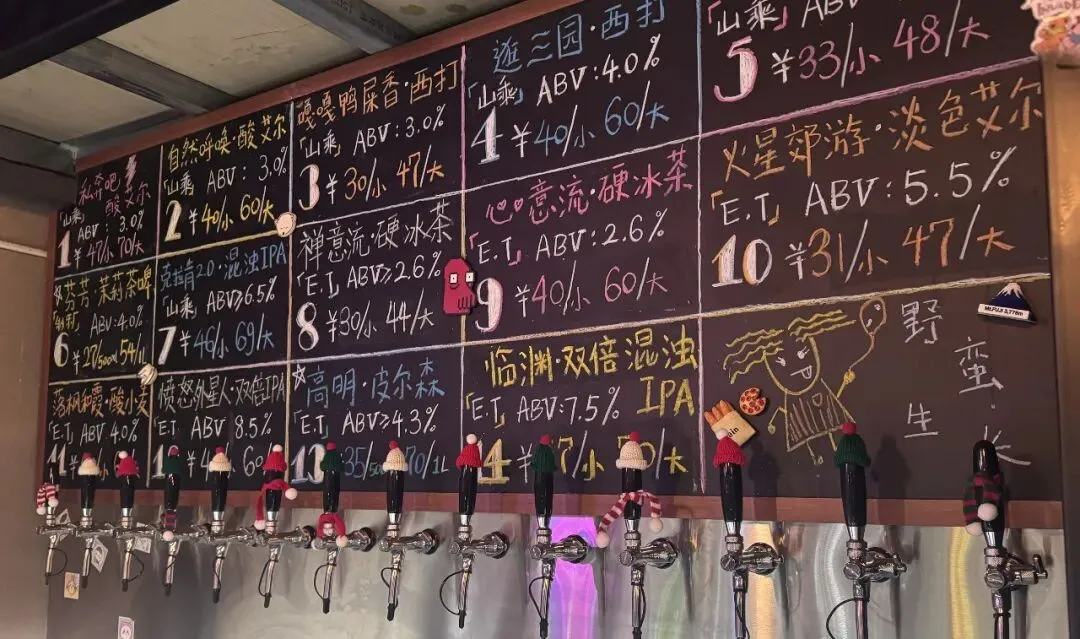 私奔吧
酸艾尔
「山乘」
ABV: 3.0%
1 ¥47/小 70/大
自然呼唤·酸艾尔
「山乘」 ABV: 3.0%
2 ¥40/小 60/大
嘎嘎鸭屎香·西打
「山乘」 ABV: 3.0%
3 ¥30/小 47/大
逛三园·西打
「山乘」 ABV: 4.0%
4 ¥40/小 60/大
「山乘」
5 ¥33/小 48/大
芬芳·茉莉茶啤
ABV: 4.0%
6 ¥27/500ml 54/1L
克拉肯2.0·混浊IPA
「山乘」 ABV≥6.5%
7 ¥46/小 69/大
禅意流·硬冰茶
「E.T」 ABV≥2.6%
8 ¥30/小 44/大
心心意流·硬冰茶
「E.T」 ABV: 2.6%
9 ¥40/小 60/大
火星郊游·淡色艾尔
「E.T」 ABV: 5.5%
10 ¥31/小 47/大
落枫和霞·酸小麦
「E.T」 ABV 4.0%
11
愤怒外星人·双倍IPA
「E.T」 ABV 8.5%
高明·皮尔森
「E.T」 ABV≥4.3%
13 35/50 70/1L
临渊·双倍混浊
IPA
「E.T」 ABV: 7.5%
14
野蛮生长
Mt.FUJI 3,776m